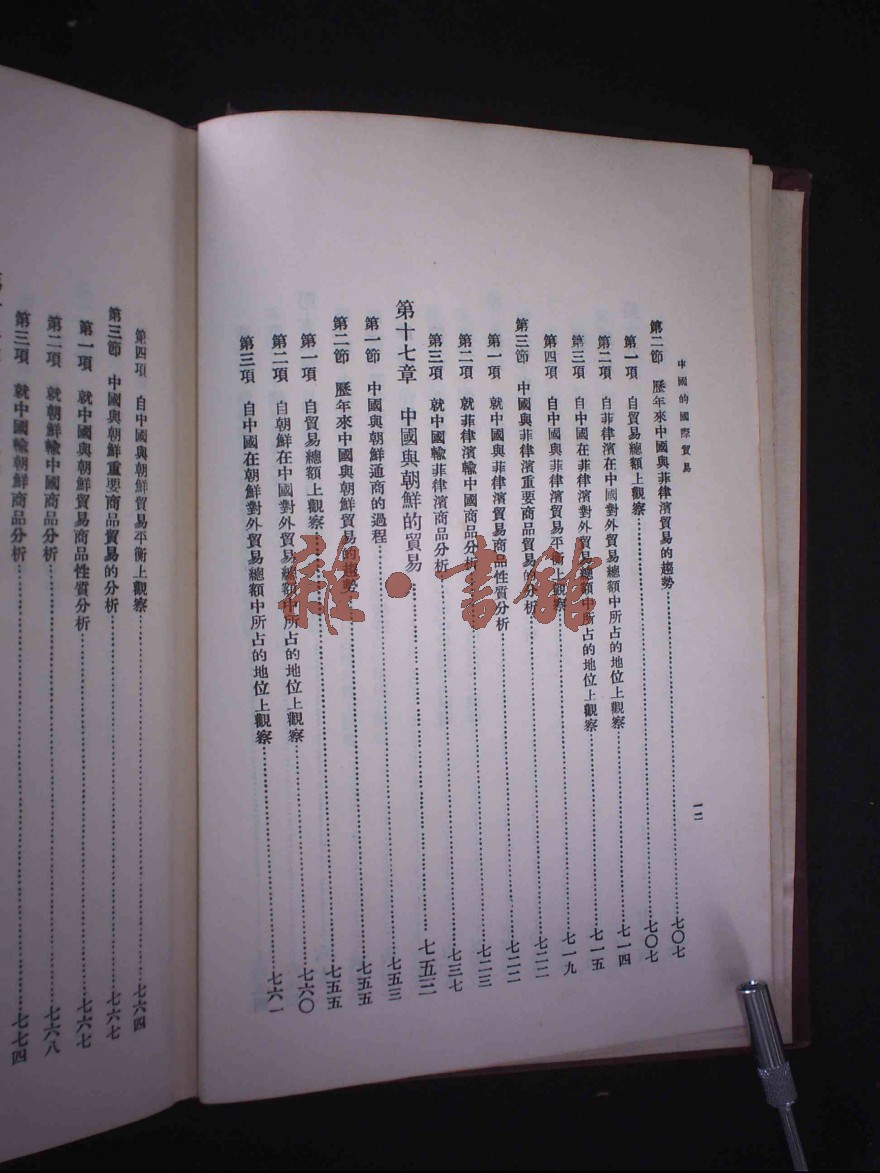 中國的國際貿易
一二
第二節 歷年來中國與菲律濱貿易的趨勢……七〇七
第一項 自貿易總額上觀察……七〇七
第二項 自菲律濱在中國對外貿易總額中所占的地位上觀察……七一四
第三項 自中國在菲律濱對外貿易總額中所占的地位上觀察……七一五
第四項 自中國與菲律濱貿易平衡上觀察……七一九
第三節 中國與菲律濱重要商品貿易的分析……七二二
第一項 就中國與菲律濱貿易商品性質分析……七二二
第二項 就菲律濱輸中國商品分析……七二三
第三項 就中國輸菲律濱商品分析……七三七
第十七章 中國與朝鮮的貿易……七五三
第一節 中國與朝鮮通商的過程……七五三
第二節 歷年來中國與朝鮮貿易的趨勢……七五五
第一項 自貿易總額上觀察……七五五
第二項 自朝鮮在中國對外貿易總額中所占的地位上觀察……七六〇
第三項 自中國在朝鮮對外貿易總額中所占的地位上觀察……七六一
第四項 自中國與朝鮮貿易平衡上觀察……七六四
第三節 中國與朝鮮重要商品貿易的分析……七六七
第一項 就中國與朝鮮貿易商品性質分析……七六七
第二項 就朝鮮輸中國商品分析……七六八
第三項 就中國輸朝鮮商品分析……七七四
雜·書館